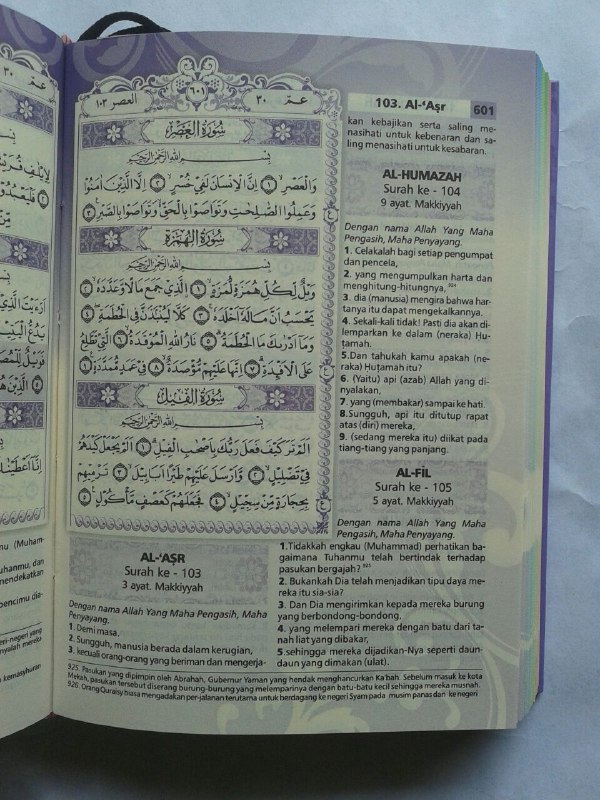 العصر ١٠٣
٦٠١
عمّ ٣٠
سُورَةُ الْعَصْرِ
بِسْمِ اللَّهِ الرَّحْمَٰنِ الرَّحِيمِ
وَالْعَصْرِ ۙ ١ إِنَّ الْإِنْسَانَ لَفِي خُسْرٍ ۙ ٢ إِلَّا الَّذِينَ آمَنُوا
وَعَمِلُوا الصّٰلِحٰتِ وَتَوَاصَوْا بِالْحَقِّ وَتَوَاصَوْا بِالصَّبْرِ ٣
سُورَةُ الْهُمَزَةِ
بِسْمِ اللَّهِ الرَّحْمَٰنِ الرَّحِيمِ
وَيْلٌ لِكُلِّ هُمَزَةٍ لُمَزَةٍ ۙ ١ الَّذِي جَمَعَ مَالًا وَعَدَّدَهُ ۙ ٢
يَحْسَبُ أَنَّ مَالَهُ أَخْلَدَهُ ۚ ٣ كَلَّا لَيُنْبَذَنَّ فِي الْحُطَمَةِ ۖ ٤
وَمَا أَدْرٰىكَ مَا الْحُطَمَةُ ۗ ٥ نَارُ اللَّهِ الْمُوقَدَةُ ۙ ٦ الَّتِي تَطَّلِعُ
عَلَى الْأَفْئِدَةِ ۗ ٧ إِنَّهَا عَلَيْهِمْ مُؤْصَدَةٌ ۙ ٨ فِي عَمَدٍ مُمَدَّدَةٍ ٩
سُورَةُ الْفِيلِ
بِسْمِ اللَّهِ الرَّحْمَٰنِ الرَّحِيمِ
أَلَمْ تَرَ كَيْفَ فَعَلَ رَبُّكَ بِأَصْحٰبِ الْفِيلِ ۗ ١ أَلَمْ يَجْعَلْ كَيْدَهُمْ
فِي تَضْلِيلٍ ۙ ٢ وَأَرْسَلَ عَلَيْهِمْ طَيْرًا أَبَابِيلَ ۙ ٣ تَرْمِيهِمْ
بِحِجَارَةٍ مِنْ سِجِّيلٍ ۙ ٤ فَجَعَلَهُمْ كَعَصْفٍ مَأْكُولٍ ٥
AL-‘AṢR
Surah ke - 103
3 ayat. Makkiyyah
Dengan nama Allah Yang Maha Pengasih, Maha
Penyayang.
1. Demi masa.
2. Sungguh, manusia berada dalam kerugian,
3. kecuali orang-orang yang beriman dan mengerja-
103. Al-‘Aṣr 601
kan kebajikan serta saling me-
nasihati untuk kebenaran dan sa-
ling menasihati untuk kesabaran.
AL-HUMAZAH
Surah ke - 104
9 ayat. Makkiyyah
Dengan nama Allah Yang Maha
Pengasih, Maha Penyayang.
1. Celakalah bagi setiap pengumpat
dan pencela,
2. yang mengumpulkan harta dan
menghitung-hitungnya, 924
3. dia (manusia) mengira bahwa har-
tanya itu dapat mengekalkannya.
4. Sekali-kali tidak! Pasti dia akan di-
lemparkan ke dalam (neraka) Hu-
ṭamah.
5.Dan tahukah kamu apakah (ne-
raka) Huṭamah itu?
6. (Yaitu) api (azab) Allah yang di-
nyalakan,
7. yang (membakar) sampai ke hati.
8.Sungguh, api itu ditutup rapat
atas (diri) mereka,
9. (sedang mereka itu) diikat pada
tiang-tiang yang panjang.
AL-FĪL
Surah ke - 105
5 ayat. Makkiyyah
Dengan nama Allah Yang Maha
Pengasih, Maha Penyayang.
1.Tidakkah engkau (Muhammad) perhatikan ba-
gaimana Tuhanmu telah bertindak terhadap
pasukan bergajah? 925
2. Bukankah Dia telah menjadikan tipu daya me-
reka itu sia-sia?
3. Dan Dia mengirimkan kepada mereka burung
yang berbondong-bondong,
4. yang melempari mereka dengan batu dari ta-
nah liat yang dibakar,
5.sehingga mereka dijadikan-Nya seperti daun-
daun yang dimakan (ulat).
925. Pasukan yang dipimpin oleh Abrahah, Gubernur Yaman yang hendak menghancurkan Ka'bah. Sebelum masuk ke kota
Mekah, pasukan tersebut diserang burung-burung yang melemparinya dengan batu-batu kecil sehingga mereka musnah.
926. Orang Quraisy biasa mengadakan per-jalanan terutama untuk berdagang ke negeri Syam pada musim panas dan ke negeri